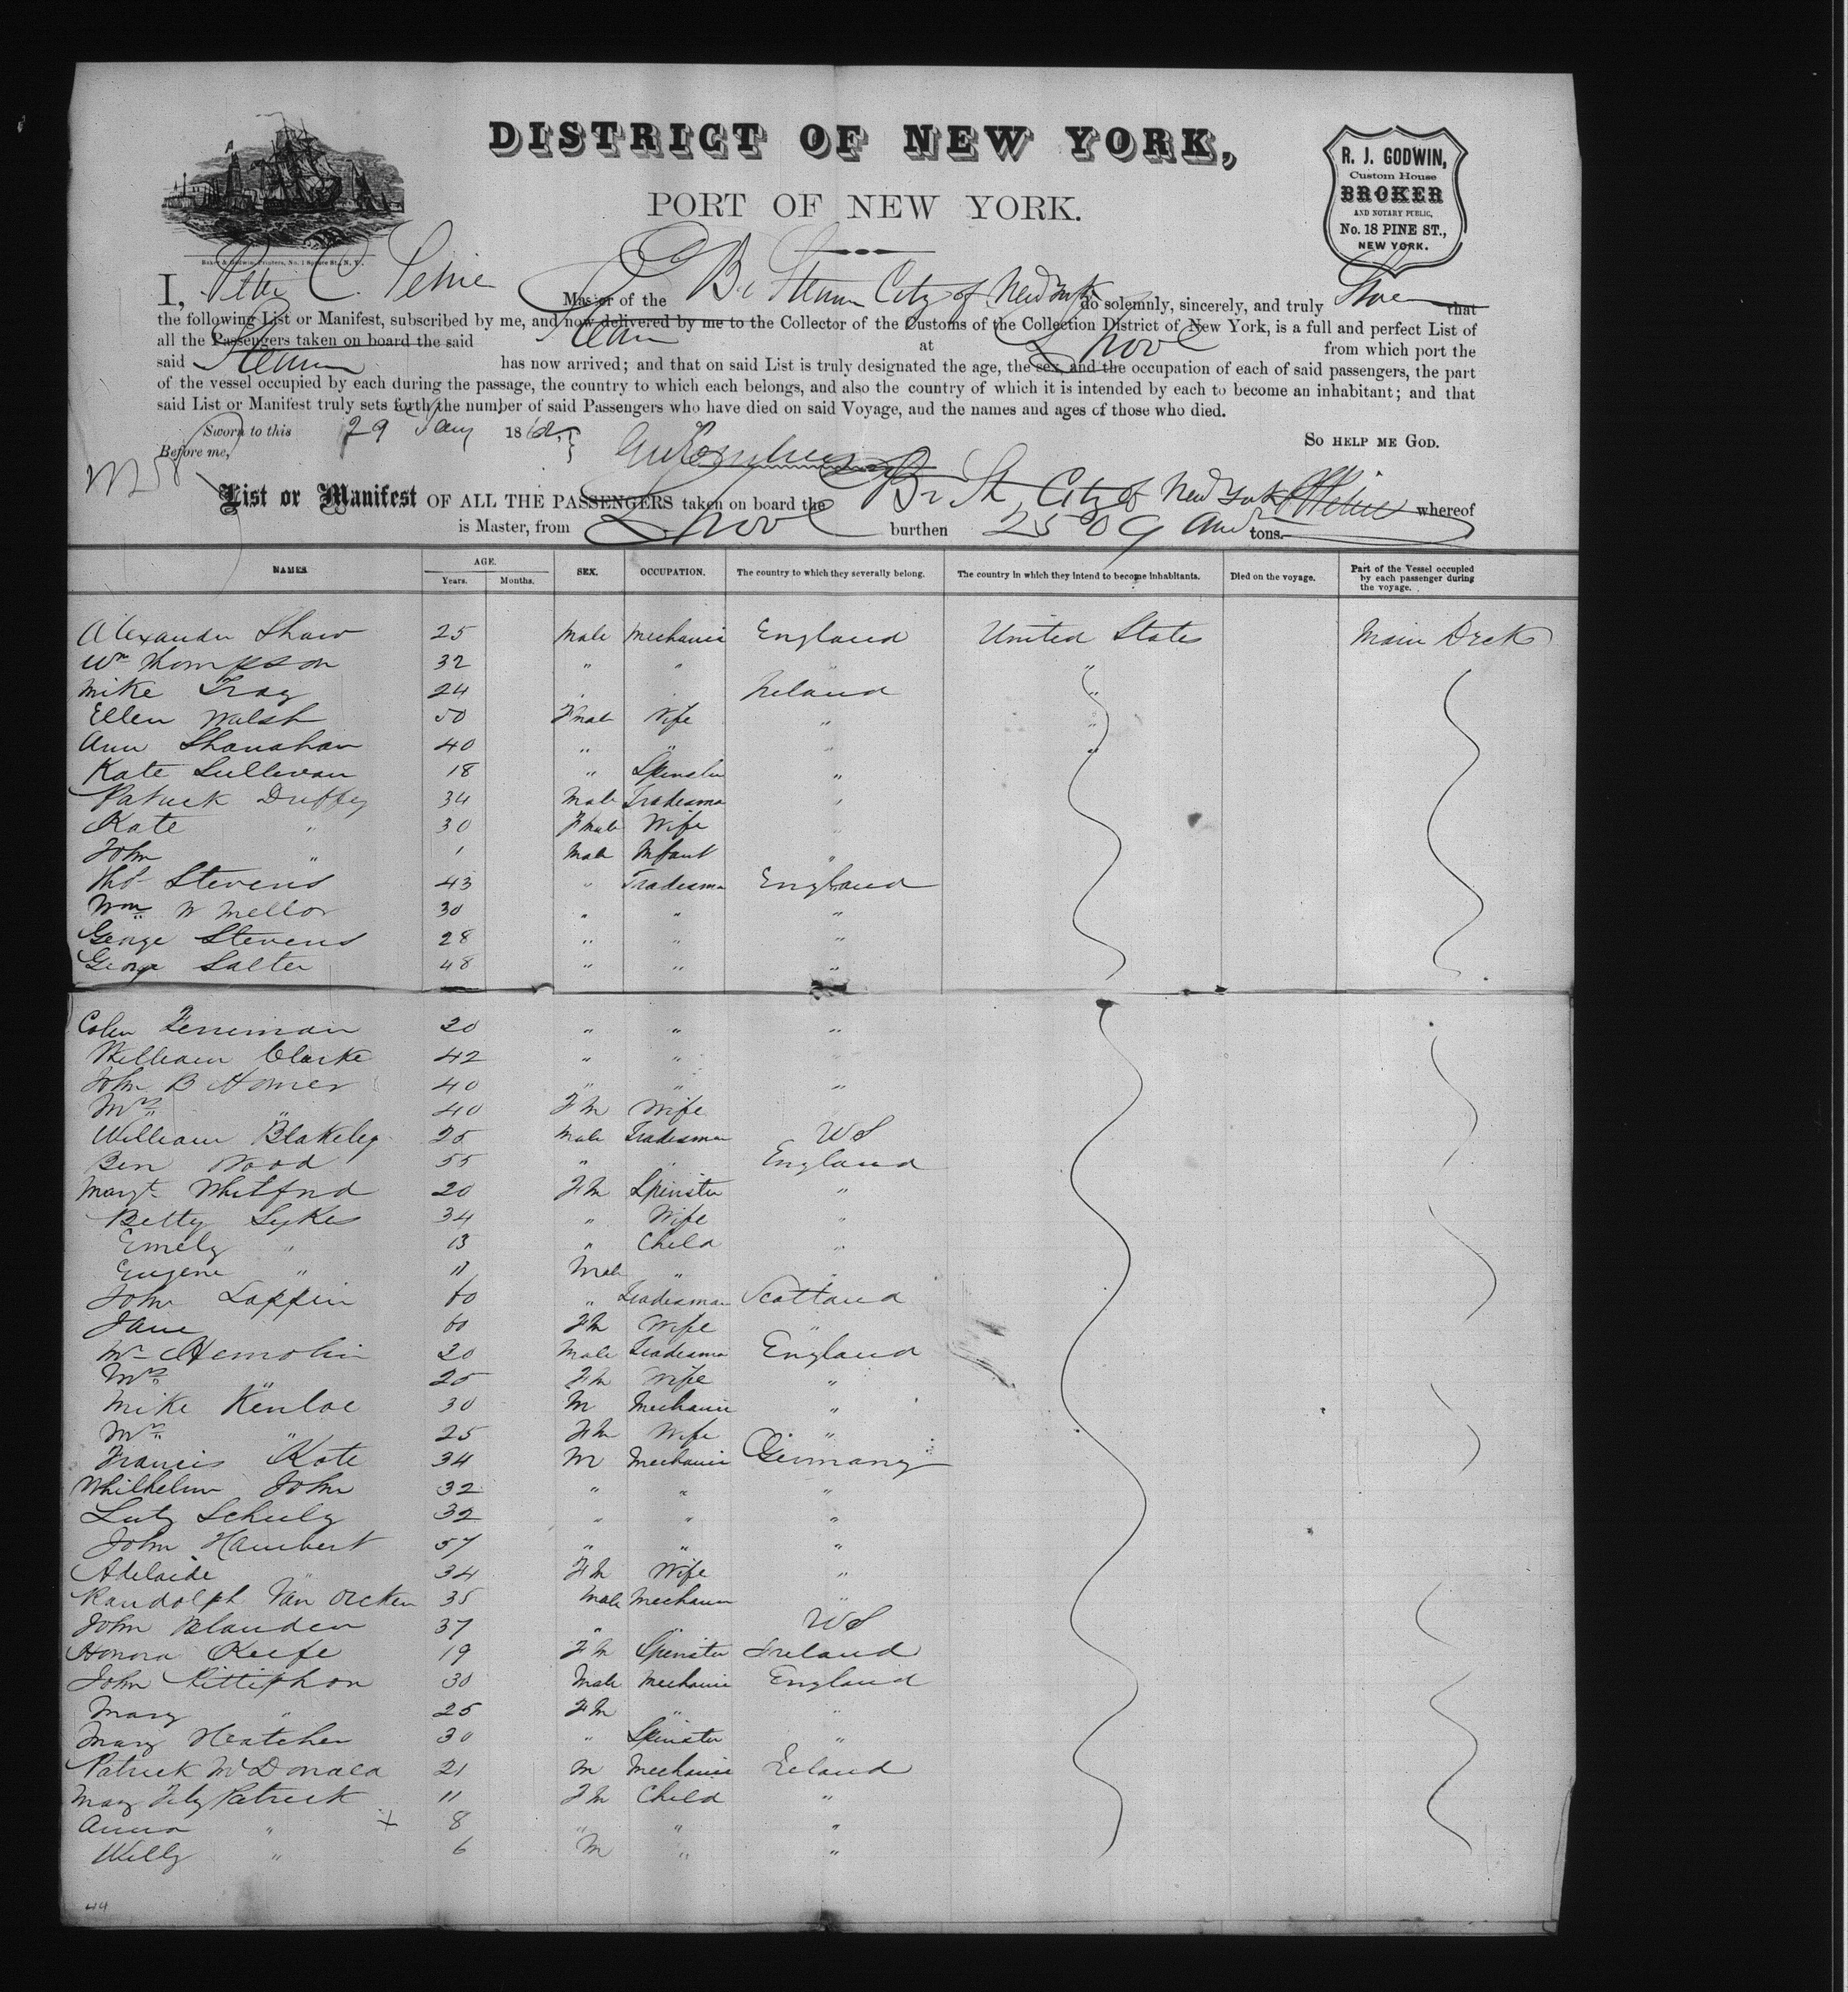 DISTRICT OF NEW YORK,
PORT OF NEW YORK.
R. J. GODWIN,
Custom House
BROKER
AND NOTARY PUBLIC,
No. 18 PINE ST.,
NEW YORK.
Baker & Godwin, Printers, No. 1 Spruce St., N. Y.
I, Peter C. Petrie Master of the Br Steam City of New York do solemnly, sincerely, and truly that
the following List or Manifest, subscribed by me, and now delivered by me to the Collector of the Customs of the Collection District of New York, is a full and perfect List of
all the Passengers taken on board the said Steam at L'pool from which port the
said Steam has now arrived; and that on said List is truly designated the age, the sex, and the occupation of each of said passengers, the part
of the vessel occupied by each during the passage, the country to which each belongs, and also the country of which it is intended by each to become an inhabitant; and that
said List or Manifest truly sets forth the number of said Passengers who have died on said Voyage, and the names and ages of those who died.
Sworn to this 29 Jany 1862 SO HELP ME GOD.
Before me,
List or Manifest OF ALL THE PASSENGERS taken on board the Br St City of New York whereof
is Master, from L'pool burthen 2509 tons.
NAMES. AGE. SEX. OCCUPATION. The country to which they severally belong. The country in which they intend to become inhabitants. Died on the voyage. Part of the Vessel occupied by each passenger during the voyage.
Years. Months.
Alexander Shaw 25 Male Mechanic England United States Main Deck
Wm Thompson 32 " " " "
Mike Tray 24 " " Ireland "
Ellen Walsh 50 Fmal Wife " "
Ann Shanahan 40 " " " "
Kate Sullivan 18 " Spinster "
Patrick Duffy 34 Male Tradesma "
Kate " 30 Fmale Wife "
John " 1 Male Infant "
Thos Stevens 43 " Tradesma England
Wm W Mellor 30 " " "
George Stevens 28 " " "
George Salter 48 " " "
Colin 20 " " "
William Clarke 42 " " "
John B Homer 40 " " "
Mrs " 40 Fm Wife
William Blakeley 25 Male Tradesman US
Ben Wood 55 " " England
Margt Whitford 20 Fm Spinster "
Betty Sykes 34 " Wife "
Emely " 13 " Child "
Eugene " 11 Male " "
John Lappin 60 " Tradesman Scotland
Jane 60 Fm Wife "
Mr 20 Male Tradesma England
Mrs " 25 Fm Wife "
Mike Kenloe 30 M Mechanic "
Mrs " 25 Fm Wife "
Francis Kote 34 M Mechanic Germany
Whilhelm John 32 " " "
Lutz Schulz 32 " " "
John Haubert 57 " " "
Adelaide " 34 Fm Wife "
Randolph Van 35 Male Mechann "
John Blauden 37 " " US
Honora Keefe 19 Fm Spinster Ireland
John Pittiphon 30 Male Mechanic England
Mary " 25 Fm " "
Mary Heatcher 30 " Spinster "
Patrick McDonald 21 M Mechanic Ireland
Mary Fitz Patrick 11 Fm Child "
Anna " + 8 " " "
Willy " 6 M " "
44